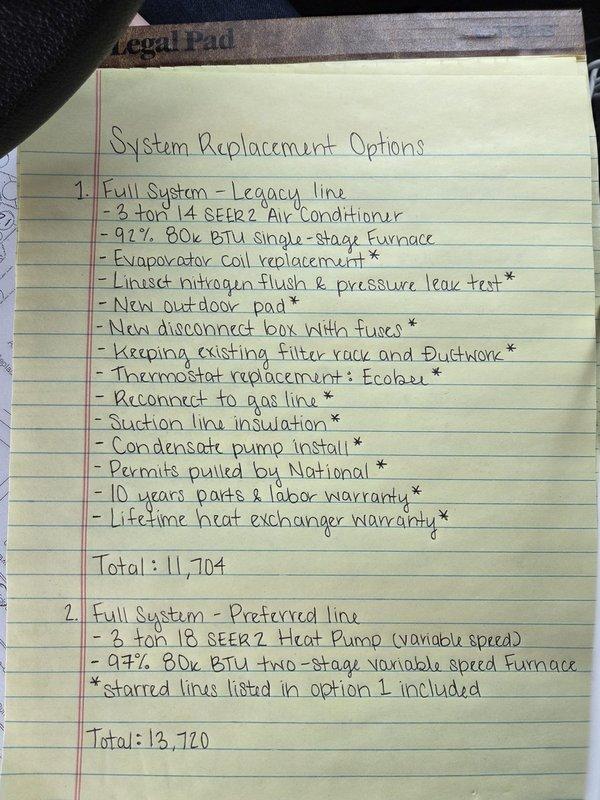 Legal Pad
System Replacement Options
1. Full System - Legacy line
- 3 ton 14 SEER2 Air Conditioner
- 92% 80k BTU single-stage Furnace
- Evaporator coil replacement*
- Lineset nitrogen flush & pressure leak test*
- New outdoor pad*
- New disconnect box with fuses*
- Keeping existing filter rack and Ductwork*
- Thermostat replacement: Ecobee*
- Reconnect to gas line*
- Suction line insulation*
- Condensate pump install*
- Permits pulled by National*
- 10 years parts & labor warranty*
- Lifetime heat exchanger warranty*
Total: 11,704
2. Full System - Preferred line
- 3 ton 18 SEER2 Heat Pump (variable speed)
- 97% 80k BTU two-stage variable speed Furnace
*starred lines listed in option 1 included
Total: 13,720